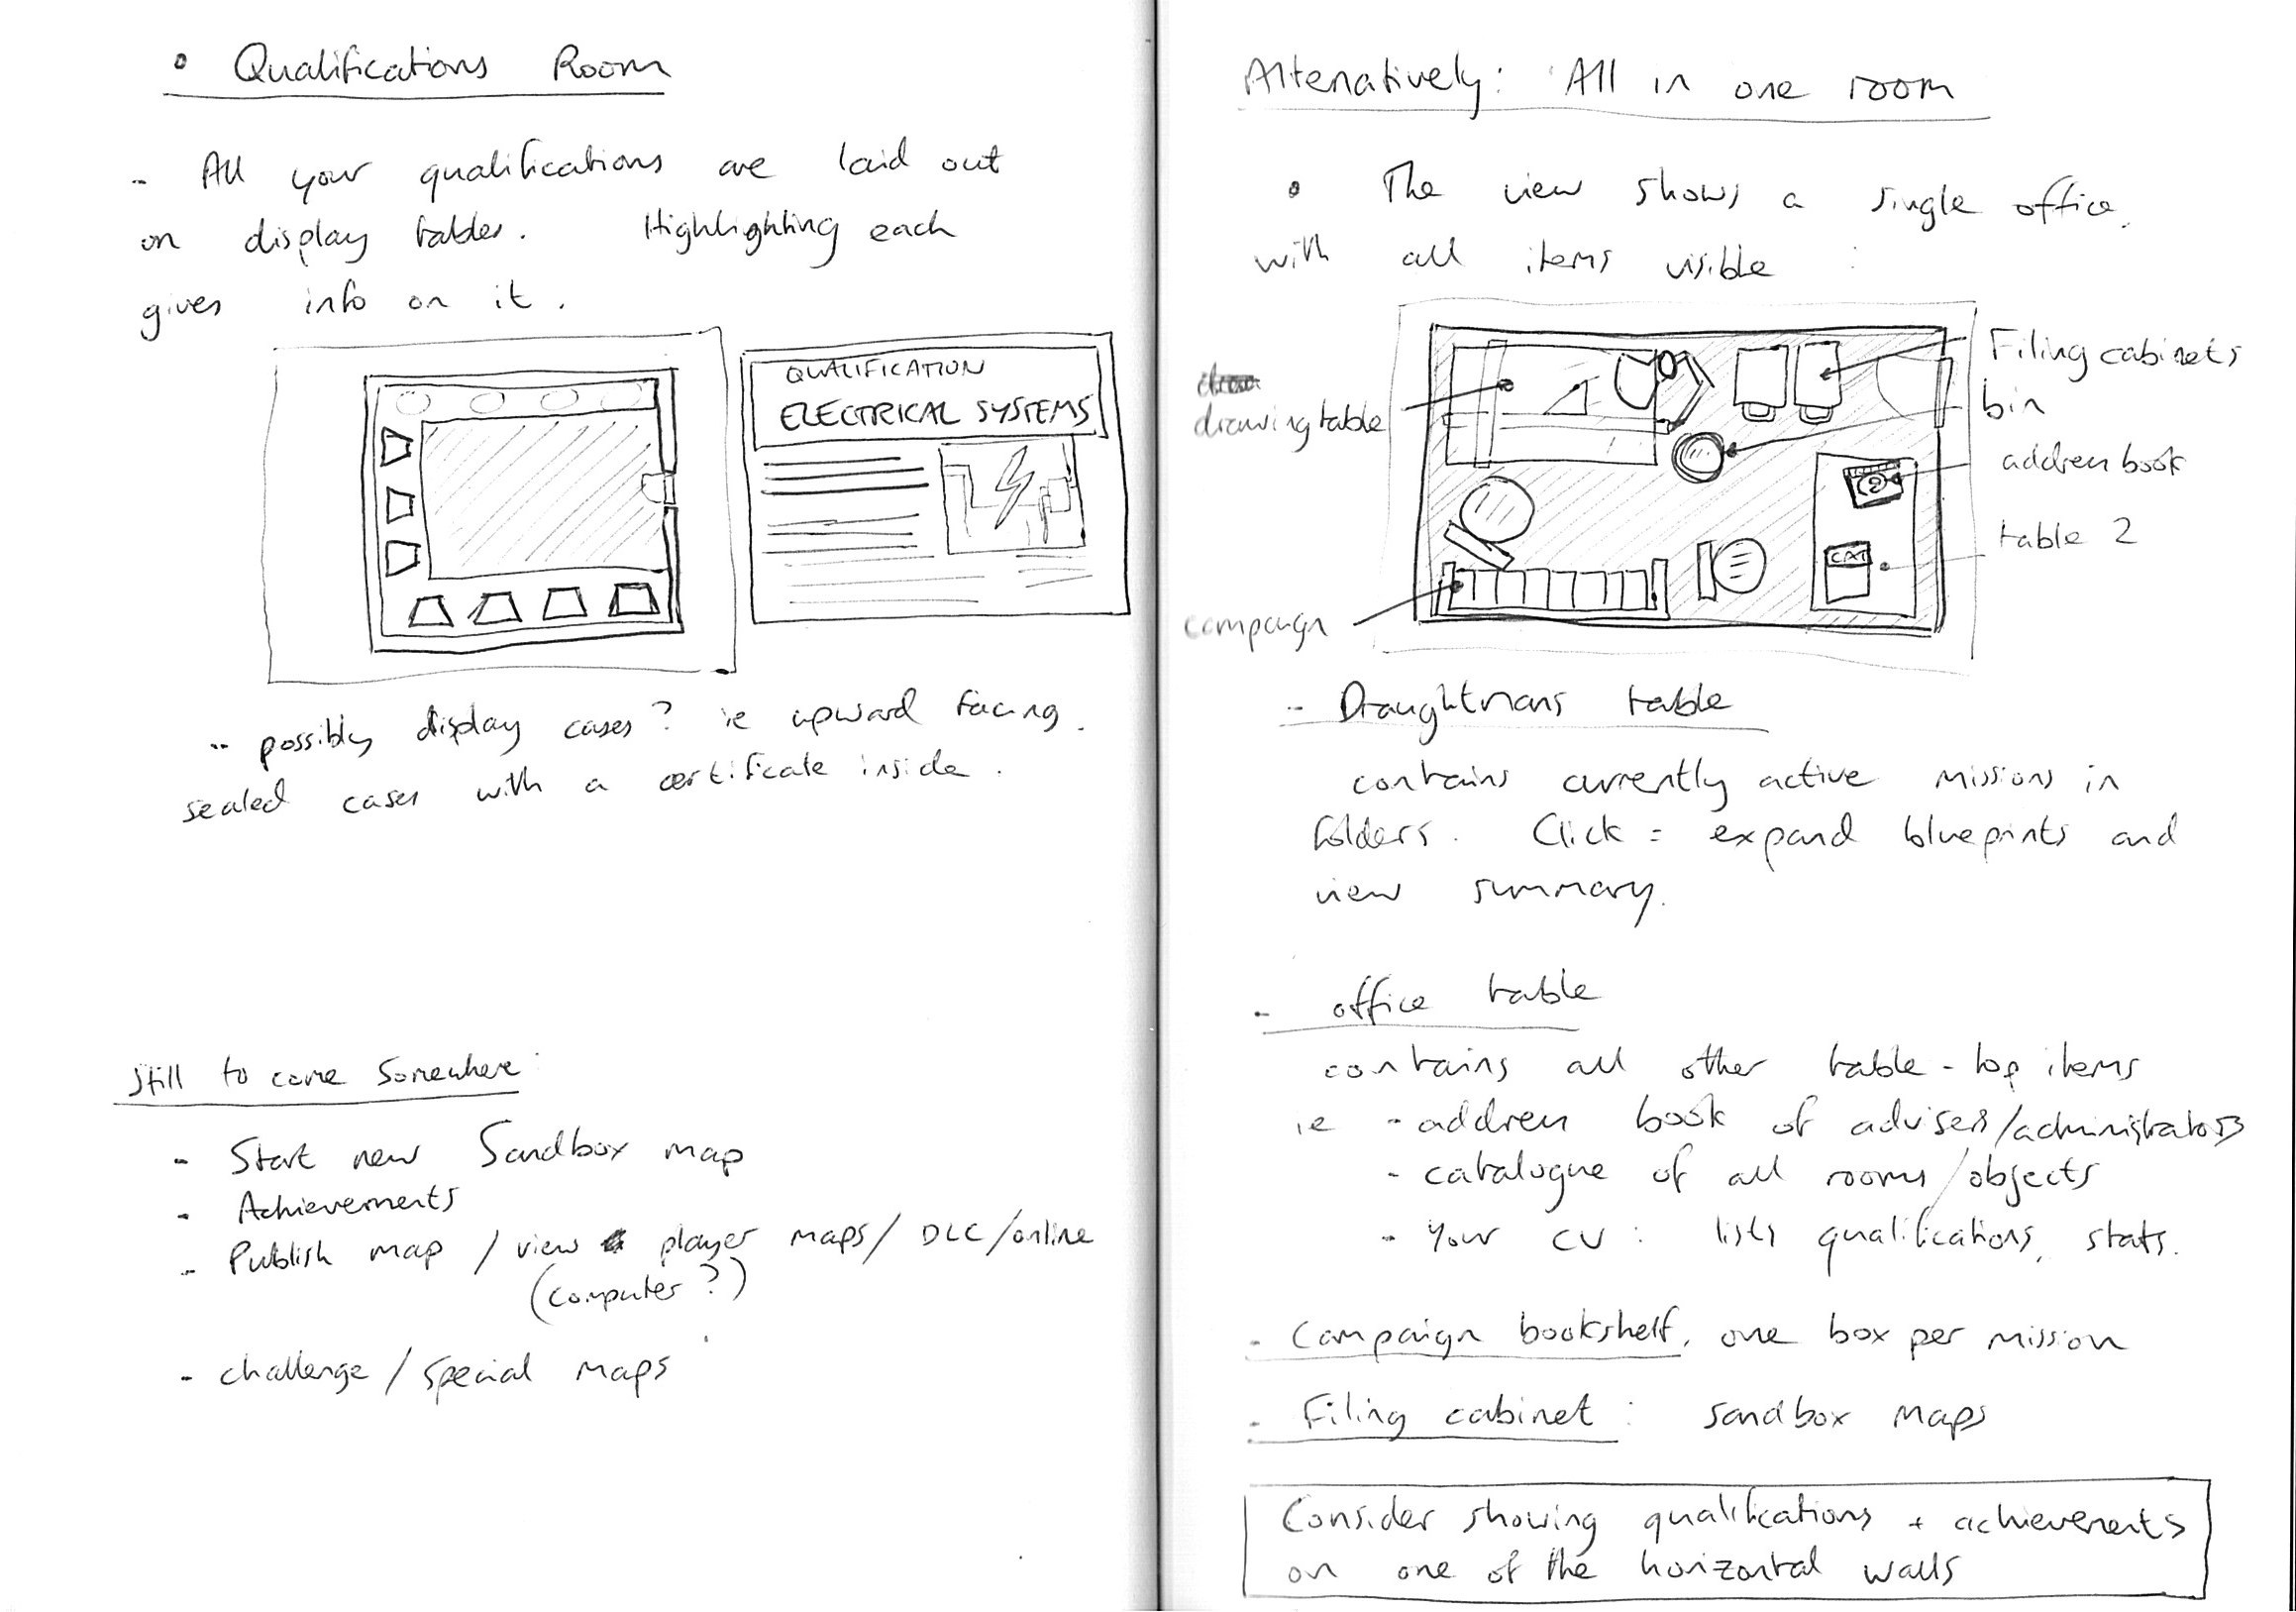 • Qualifications Room
- All your qualifications are laid out
on display tables. Highlighting each
gives info on it.
QUALIFICATION
ELECTRICAL SYSTEMS
- possibly display cases? ie upward facing
sealed cases with a certificate inside.
Still to come somewhere:
- Start new Sandbox map
- Achievements
- Publish map / view player maps / DLC / online
(computer?)
- challenge / special maps
Altenatively: All in one room
• The view shows a single office,
with all items visible :
Filing cabinets
bin
drawing table
address book
table 2
CAT
campaign
- Draughtmans table
contains currently active missions in
folders. Click = expand blueprints and
view summary.
- office table
contains all other table-top items
ie - address book of advisers/administrators
- catalogue of all rooms/objects
- Your CV : lists qualifications, stats.
- Campaign bookshelf, one box per mission
- Filing cabinet : sandbox maps
Consider showing qualifications + achievements
on one of the horizontal walls